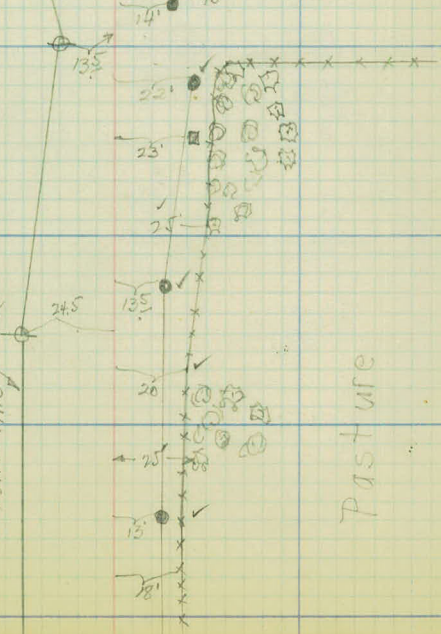 14'
13.5
22'
23'
25'
13.5
24.5
20'
25'
15'
18'
Pasture